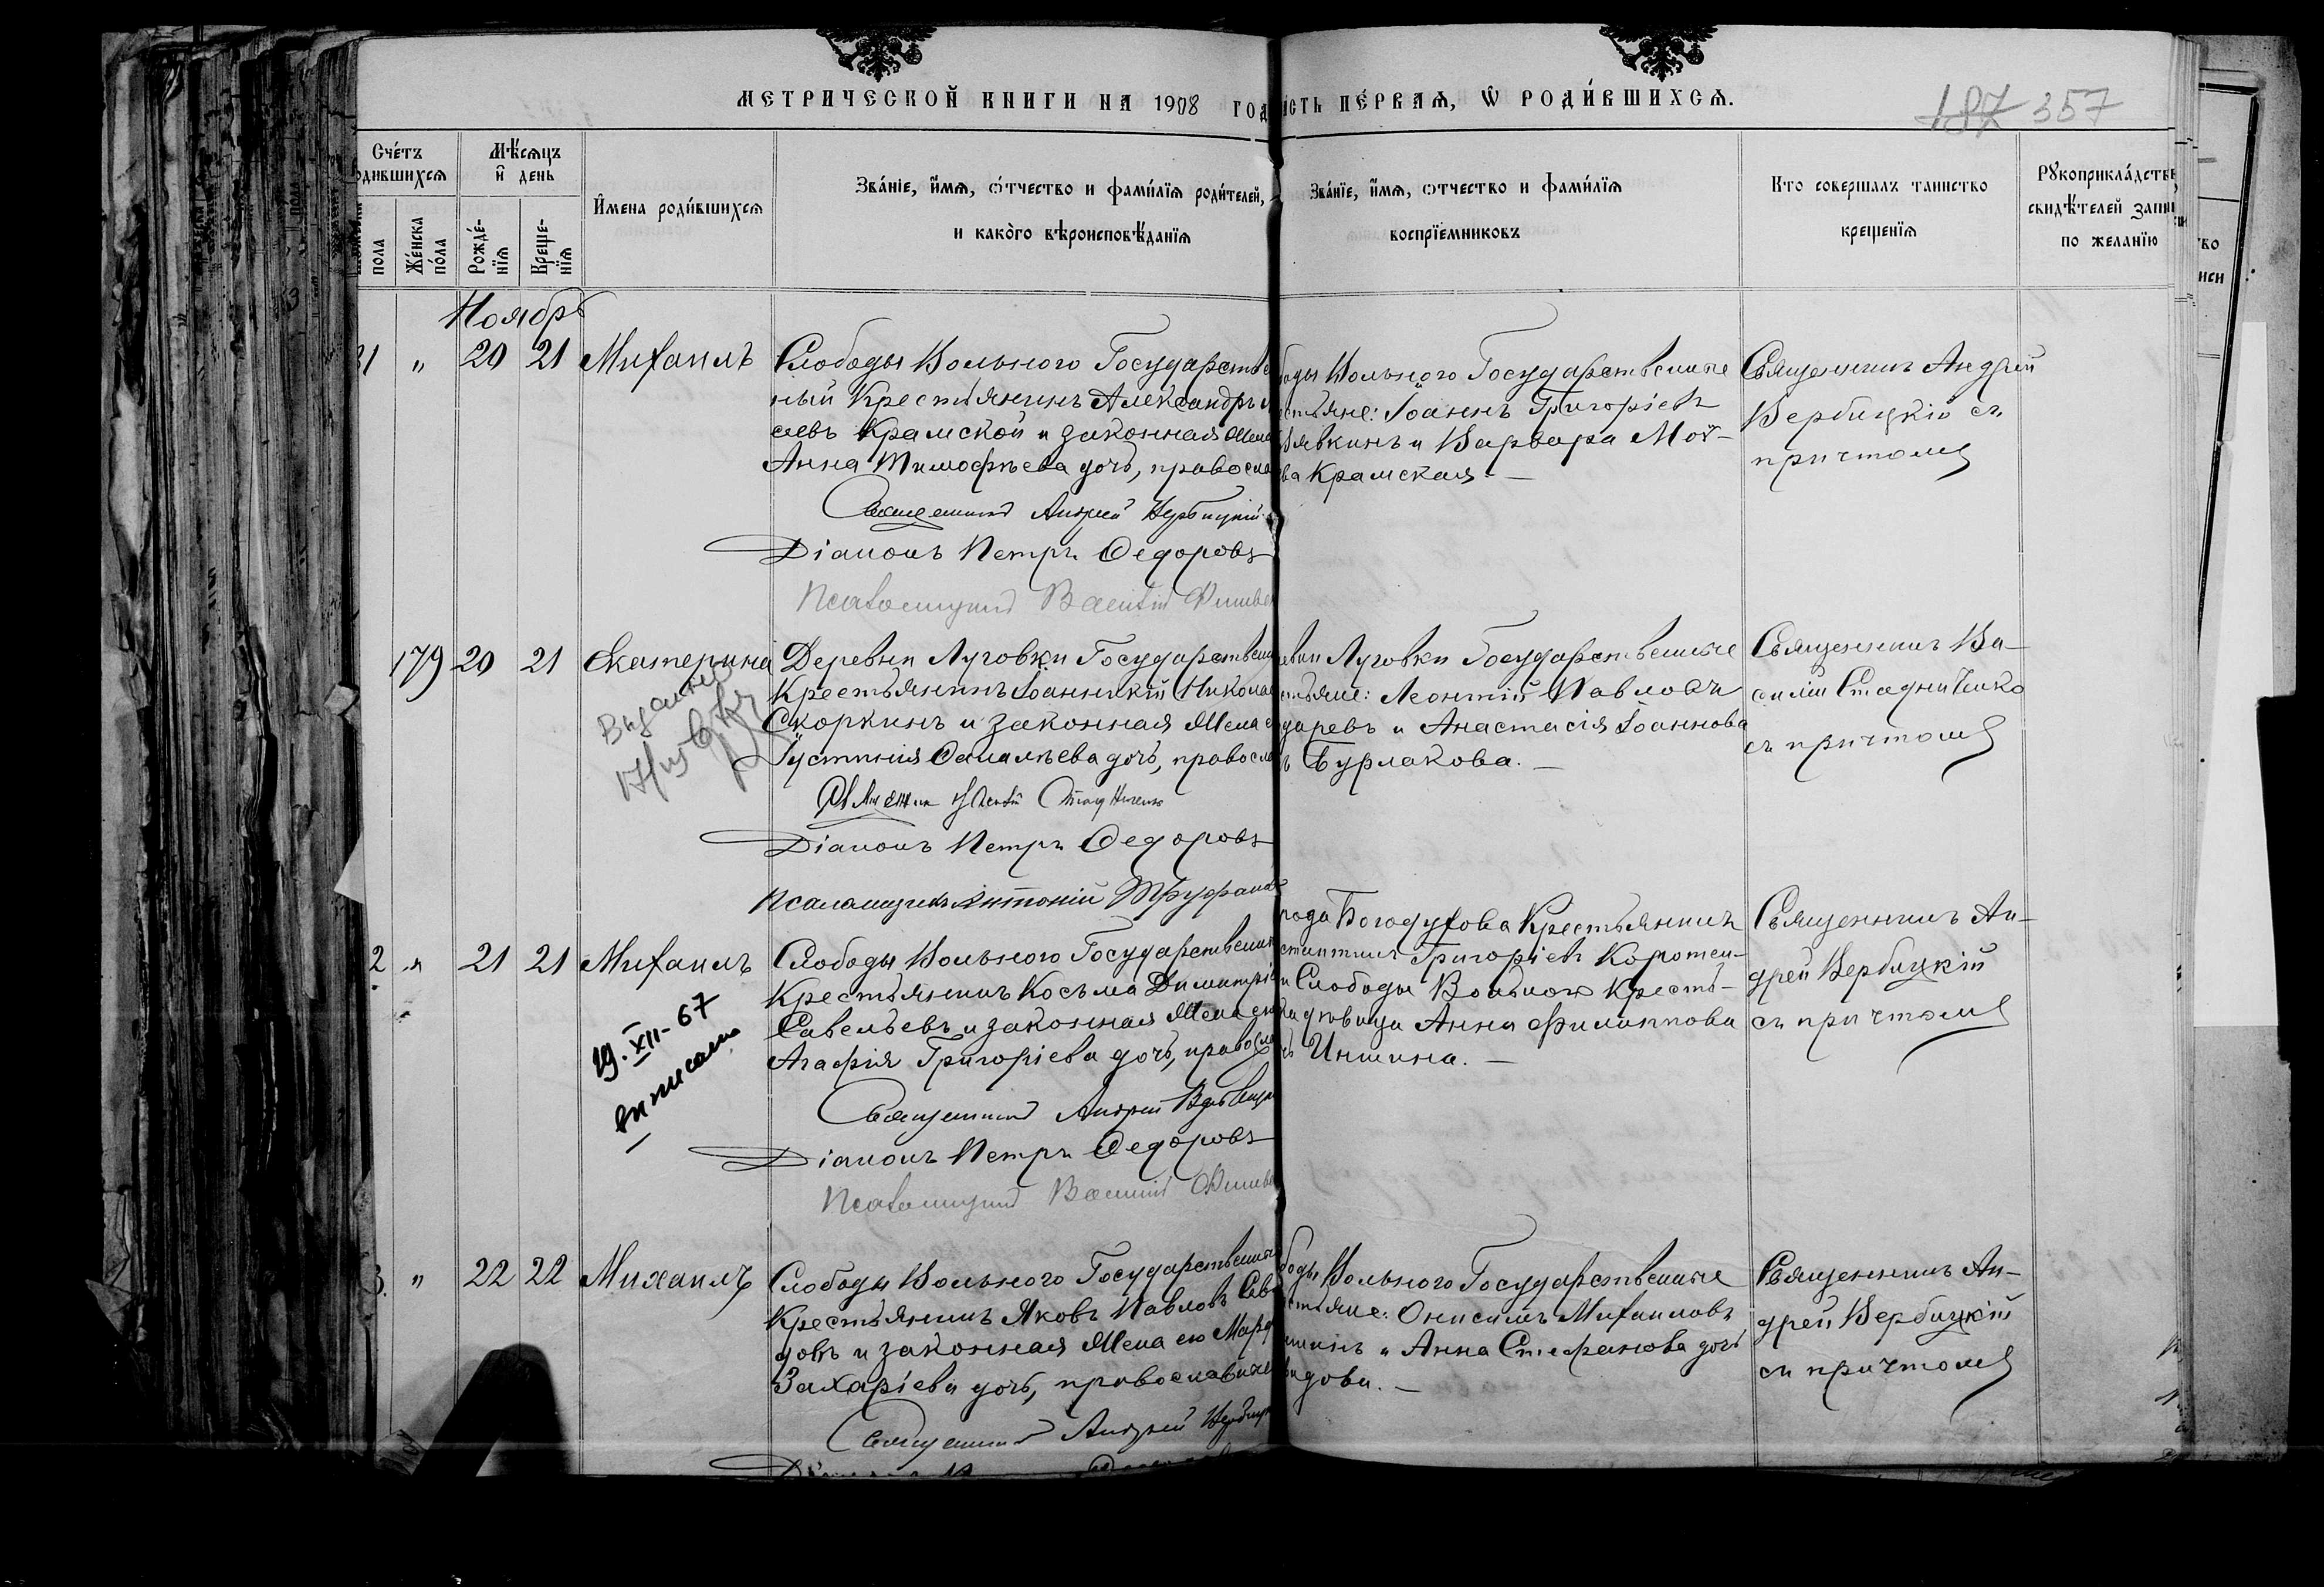 МЕТРИЧЕСКОЙ КНИГИ НА 1908 ГОД
ЧАСТЬ ПЕ́РВАЯ, Ѿ РОДИ́ВШИХСЯ.
187 357
Сче́тъ
родившихся
Мѣ́сяцъ
и҆ день
пола
Же́нска
по́ла
Рожде́-
нїя
Креще-
нїя
И҆мена роди́вшихся
Зва́нїе, и҆́мя, ѻ҆́тчество и фами́лїя роди́телей,
и како́го вѣроисповѣ́данїя
Зва́нїе, и҆́мя, ѻтчество и фами́лїя
воспрїемниковъ
Кто совершалъ таинство
крещенїя
Рꙋкоприкла́дство
свидѣ́телей запи
по желанїю
Ноябрь
31 " 20 21 Михаилъ
Слободы Вольного Государстве
ный Крестьянинъ Александръ
сѣевъ Крамской и законная жена
Анна Тимофѣева дочь, правосла
Священникъ Андрей Вербицкій
Діаконъ Петръ Федоровъ
Псаломщикъ Василій
боды Вольного Государственные
стьяне: Іоаннъ Григоріевъ
явкинъ и Варвара Мои-
ва Крамская. —
Священникъ Андрей
Вербицкій съ
причтомъ
179 20 21 Екатерина
Деревни Луговки Государствен
Крестьянинъ Іоанникій Никола
Скоркинъ и законная жена е
Іустинія дочь, правосла
Священникъ Василій Стадниченко
Діаконъ Петръ Федоровъ
Псаломщикъ Антоній Труфанов
евни Луговки Государственные
стьяне: Леонтій Павловъ
даревъ и Анастасія Іоаннова
Бурлакова. —
Священникъ Ва-
силій Стадниченко
съ причтомъ
2 " 21 21 Михаилъ
19.XII-67
Слободы Вольного Государствен
Крестьянинъ Косьма Димитріе
Савельевъ и законная жена его
Агафія Григоріева дочь, правосла
Священникъ Андрей Вербицкі
Діаконъ Петръ Федоровъ
Псаломщикъ Василій
рода Богодухова Крестьянинъ
стантинъ Григоріевъ Коротен-
и Слободы Вольной Кресть-
ка дѣвица Анна Филиппова
Иншина. —
Священникъ Ан-
дрей Вербицкій
съ причтомъ
3. " 22 22 Михаилъ
Слободы Вольного Государственн
Крестьянинъ Яковъ Павловъ Сав
довъ и законная жена его Мар
Захаріева дочь, православные
Священникъ Андрей Вербицк
боды Вольного Государственные
стьяне: Онисимъ Михаиловъ
шкинъ и Анна Стефанова дочь
дова. —
Священникъ Ан-
дрей Вербицкій
съ причтомъ